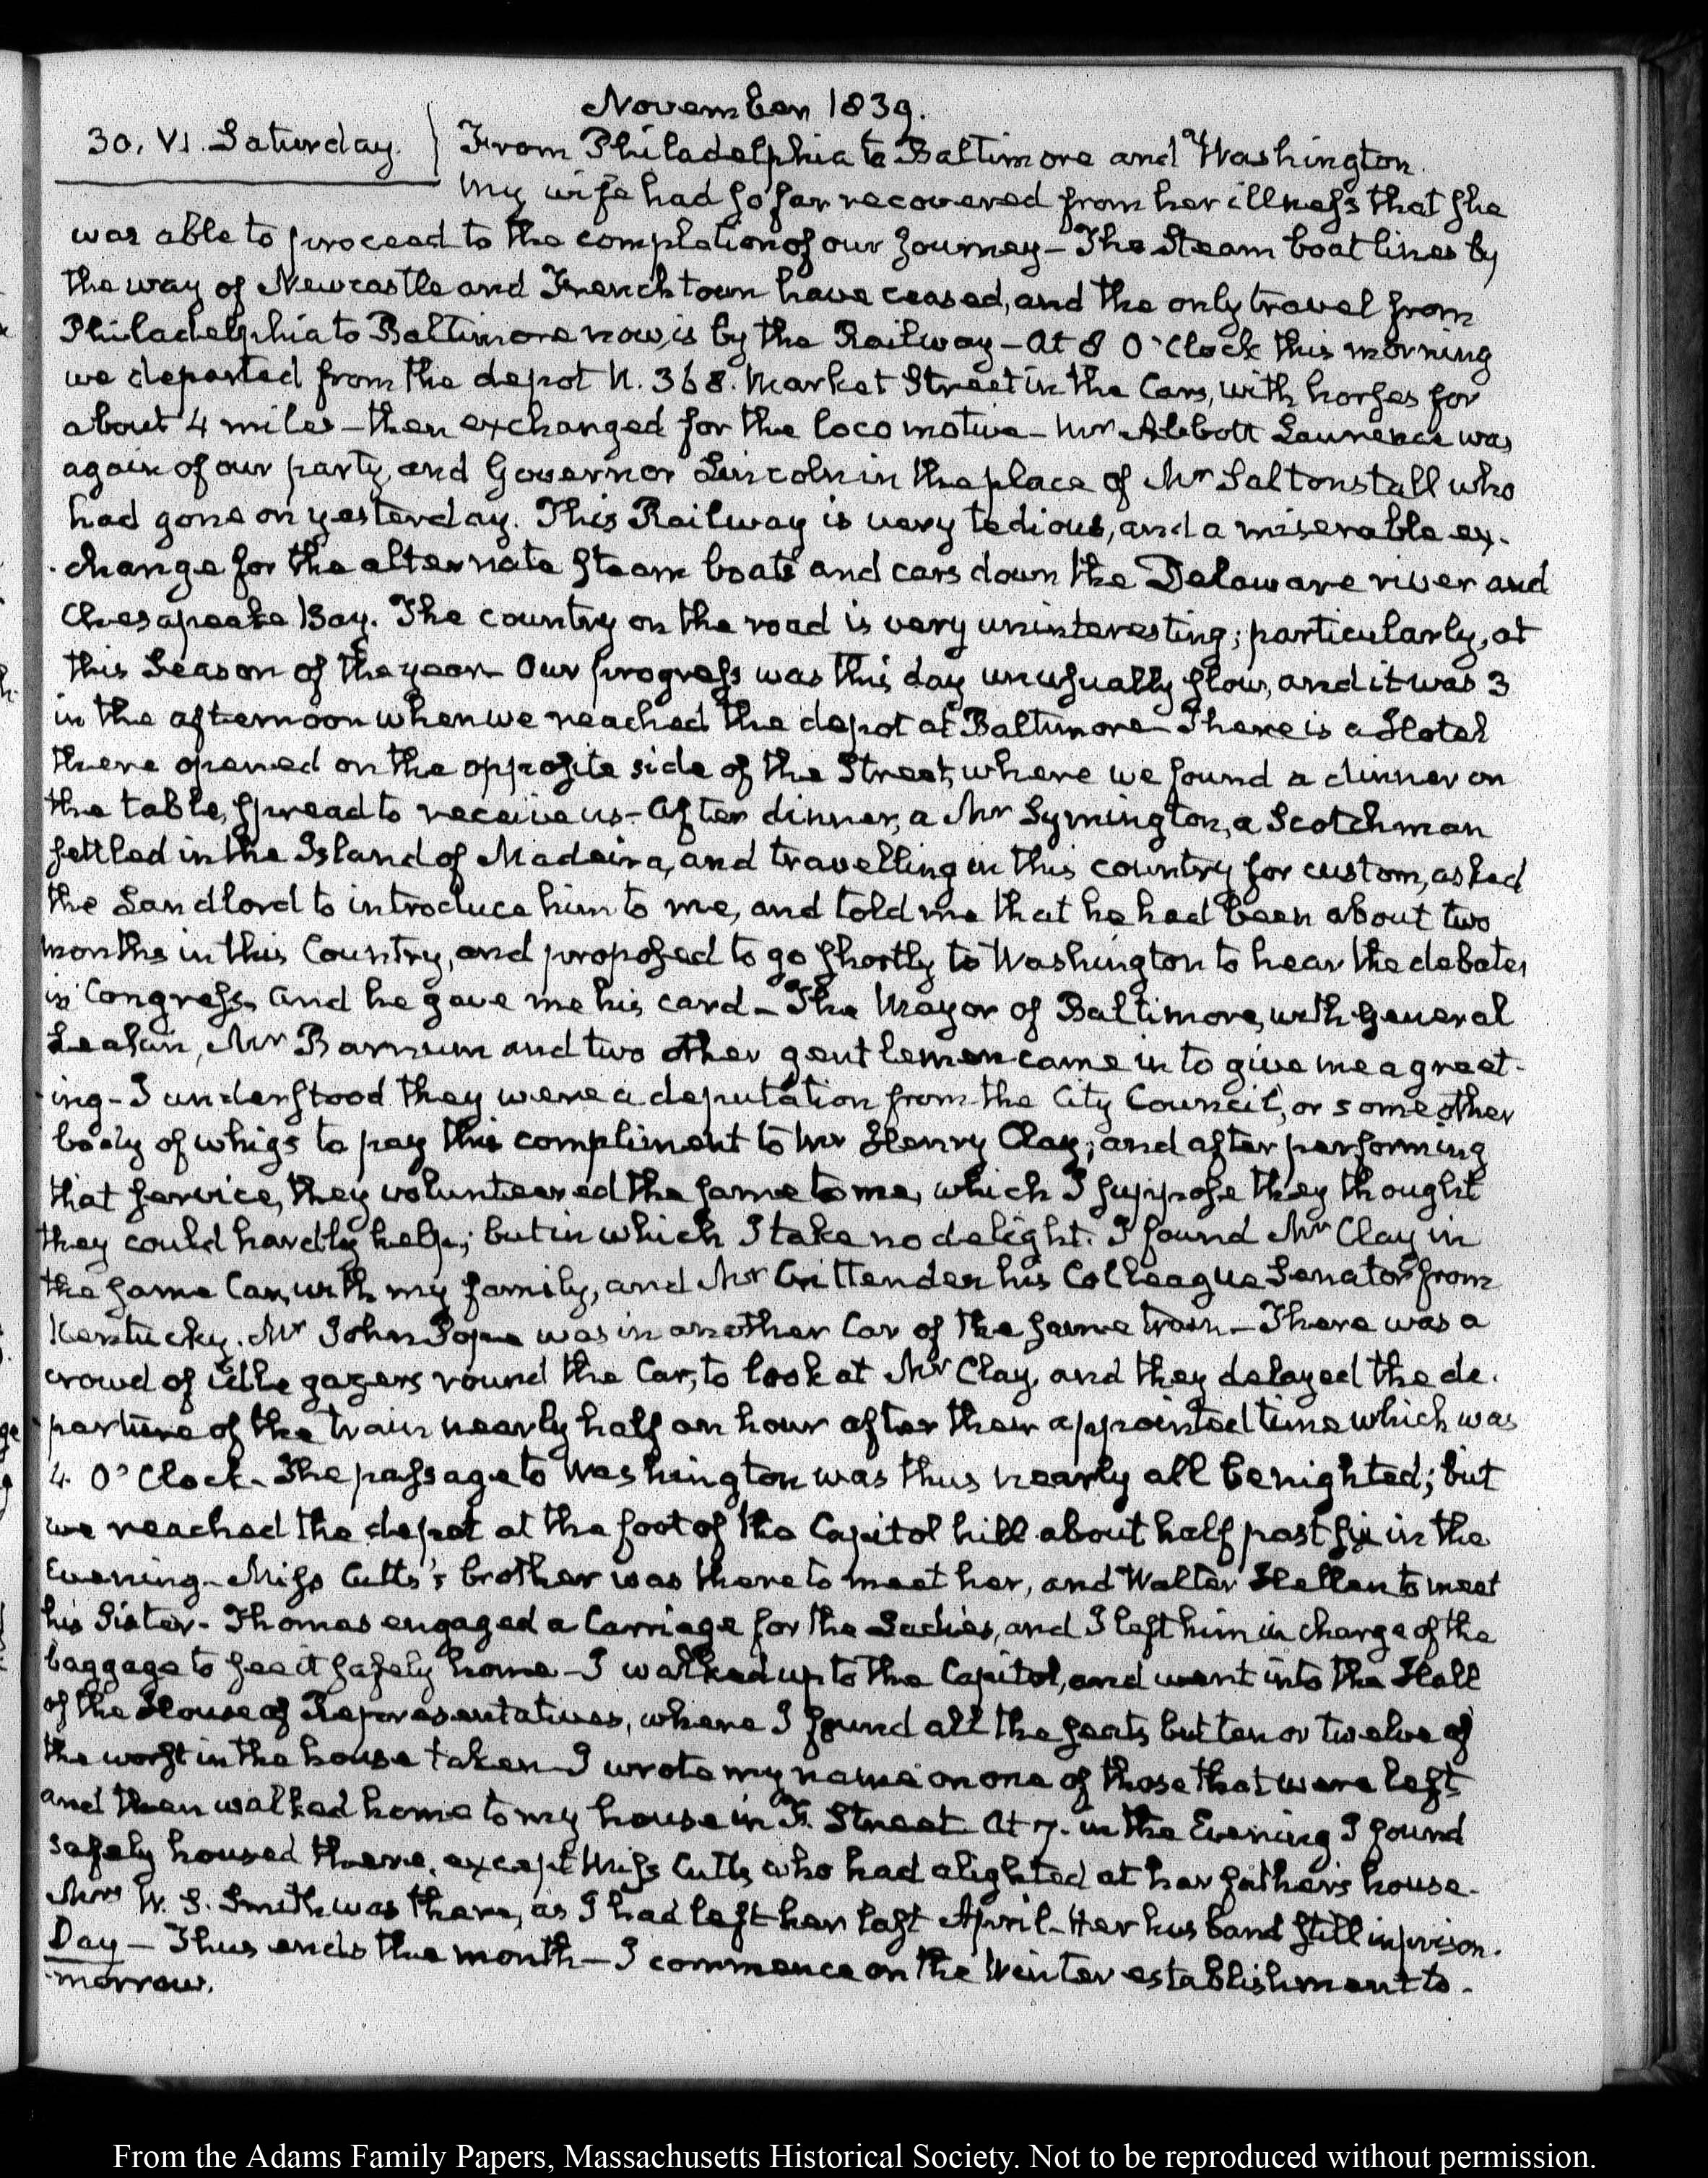 November 1839.
30. VI. Saturday. From Philadelphia to Baltimore and Washington.
My wife had so far recovered from her illness that she
was able to proceed to the completion of our Journey – The Steam boat lines by
the way of Newcastle and Frenchtown have ceased, and the only travel from
Philadelphia to Baltimore now, is by the Railway – At 8 O'Clock this morning
we departed from the depot N. 368. Market Street in the Cars, with horses for
about 4 miles – then exchanged for the locomotive – Mr Abbott Lawrence was
again of our party, and Governor Lincoln in the place of Mr Saltonstall who
had gone on yesterday. This Railway is very tedious, and a miserable ex-
-change for the alternate steam boats and cars down the Delaware river and
Chesapeake Bay. The country on the road is very uninteresting; particularly, at
this Season of the year – Our progress was this day unusually slow, and it was 3
in the afternoon when we reached the depot at Baltimore – There is a Hotel
there opened on the opposite side of the Street, where we found a dinner on
the table, spread to receive us – After dinner, a Mr Symington, a Scotchman
settled in the Island of Madeira, and travelling in this country for custom, asked
the Landlord to introduce him to me, and told me that he had been about two
months in this Country, and proposed to go shortly to Washington to hear the debates
in Congress. And he gave me his card – The Mayor of Baltimore, with General
Leakin, Mr Barnum and two other gentlemen came in to give me a greet-
-ing – I understood they were a deputation from the City Council, or some other
body of whigs to pay this compliment to Mr Henry Clay; and after performing
that service, they volunteered the same to me, which I suppose they thought
they could hardly help; but in which I take no delight. I found Mr Clay in
the same Car, with my family, and Mr Crittenden his Colleague Senator from
Kentucky. Mr John Pope was in another Car of the same train – There was a
crowd of idle gazers round the Car, to look at Mr Clay, and they delayed the de-
parture of the train nearly half an hour after their appointed time which was
4. O'Clock – The passage to Washington was thus nearly all benighted; but
we reached the depot at the foot of the Capitol hill about half past six in the
Evening – Miss Cutts's brother was there to meet her, and Walter Hellen to meet
his Sister – Thomas engaged a Carriage for the Ladies, and I left him in charge of the
baggage to see it safely home – I walked up to the Capitol, and went into the Hall
of the House of Representatives, where I found all the seats but ten or twelve of
the worst in the house taken – I wrote my name on one of those that were left
and then walked home to my house in F. Street – At 7. in the Evening I found
safely housed there, except Miss Cutts who had alighted at her father's house –
Mrs W. S. Smith was there, as I had left her last April – Her husband still in prison.
Day – Thus ends the month – I commence on the Winter establishment to-
-morrow.
From the Adams Family Papers, Massachusetts Historical Society. Not to be reproduced without permission.